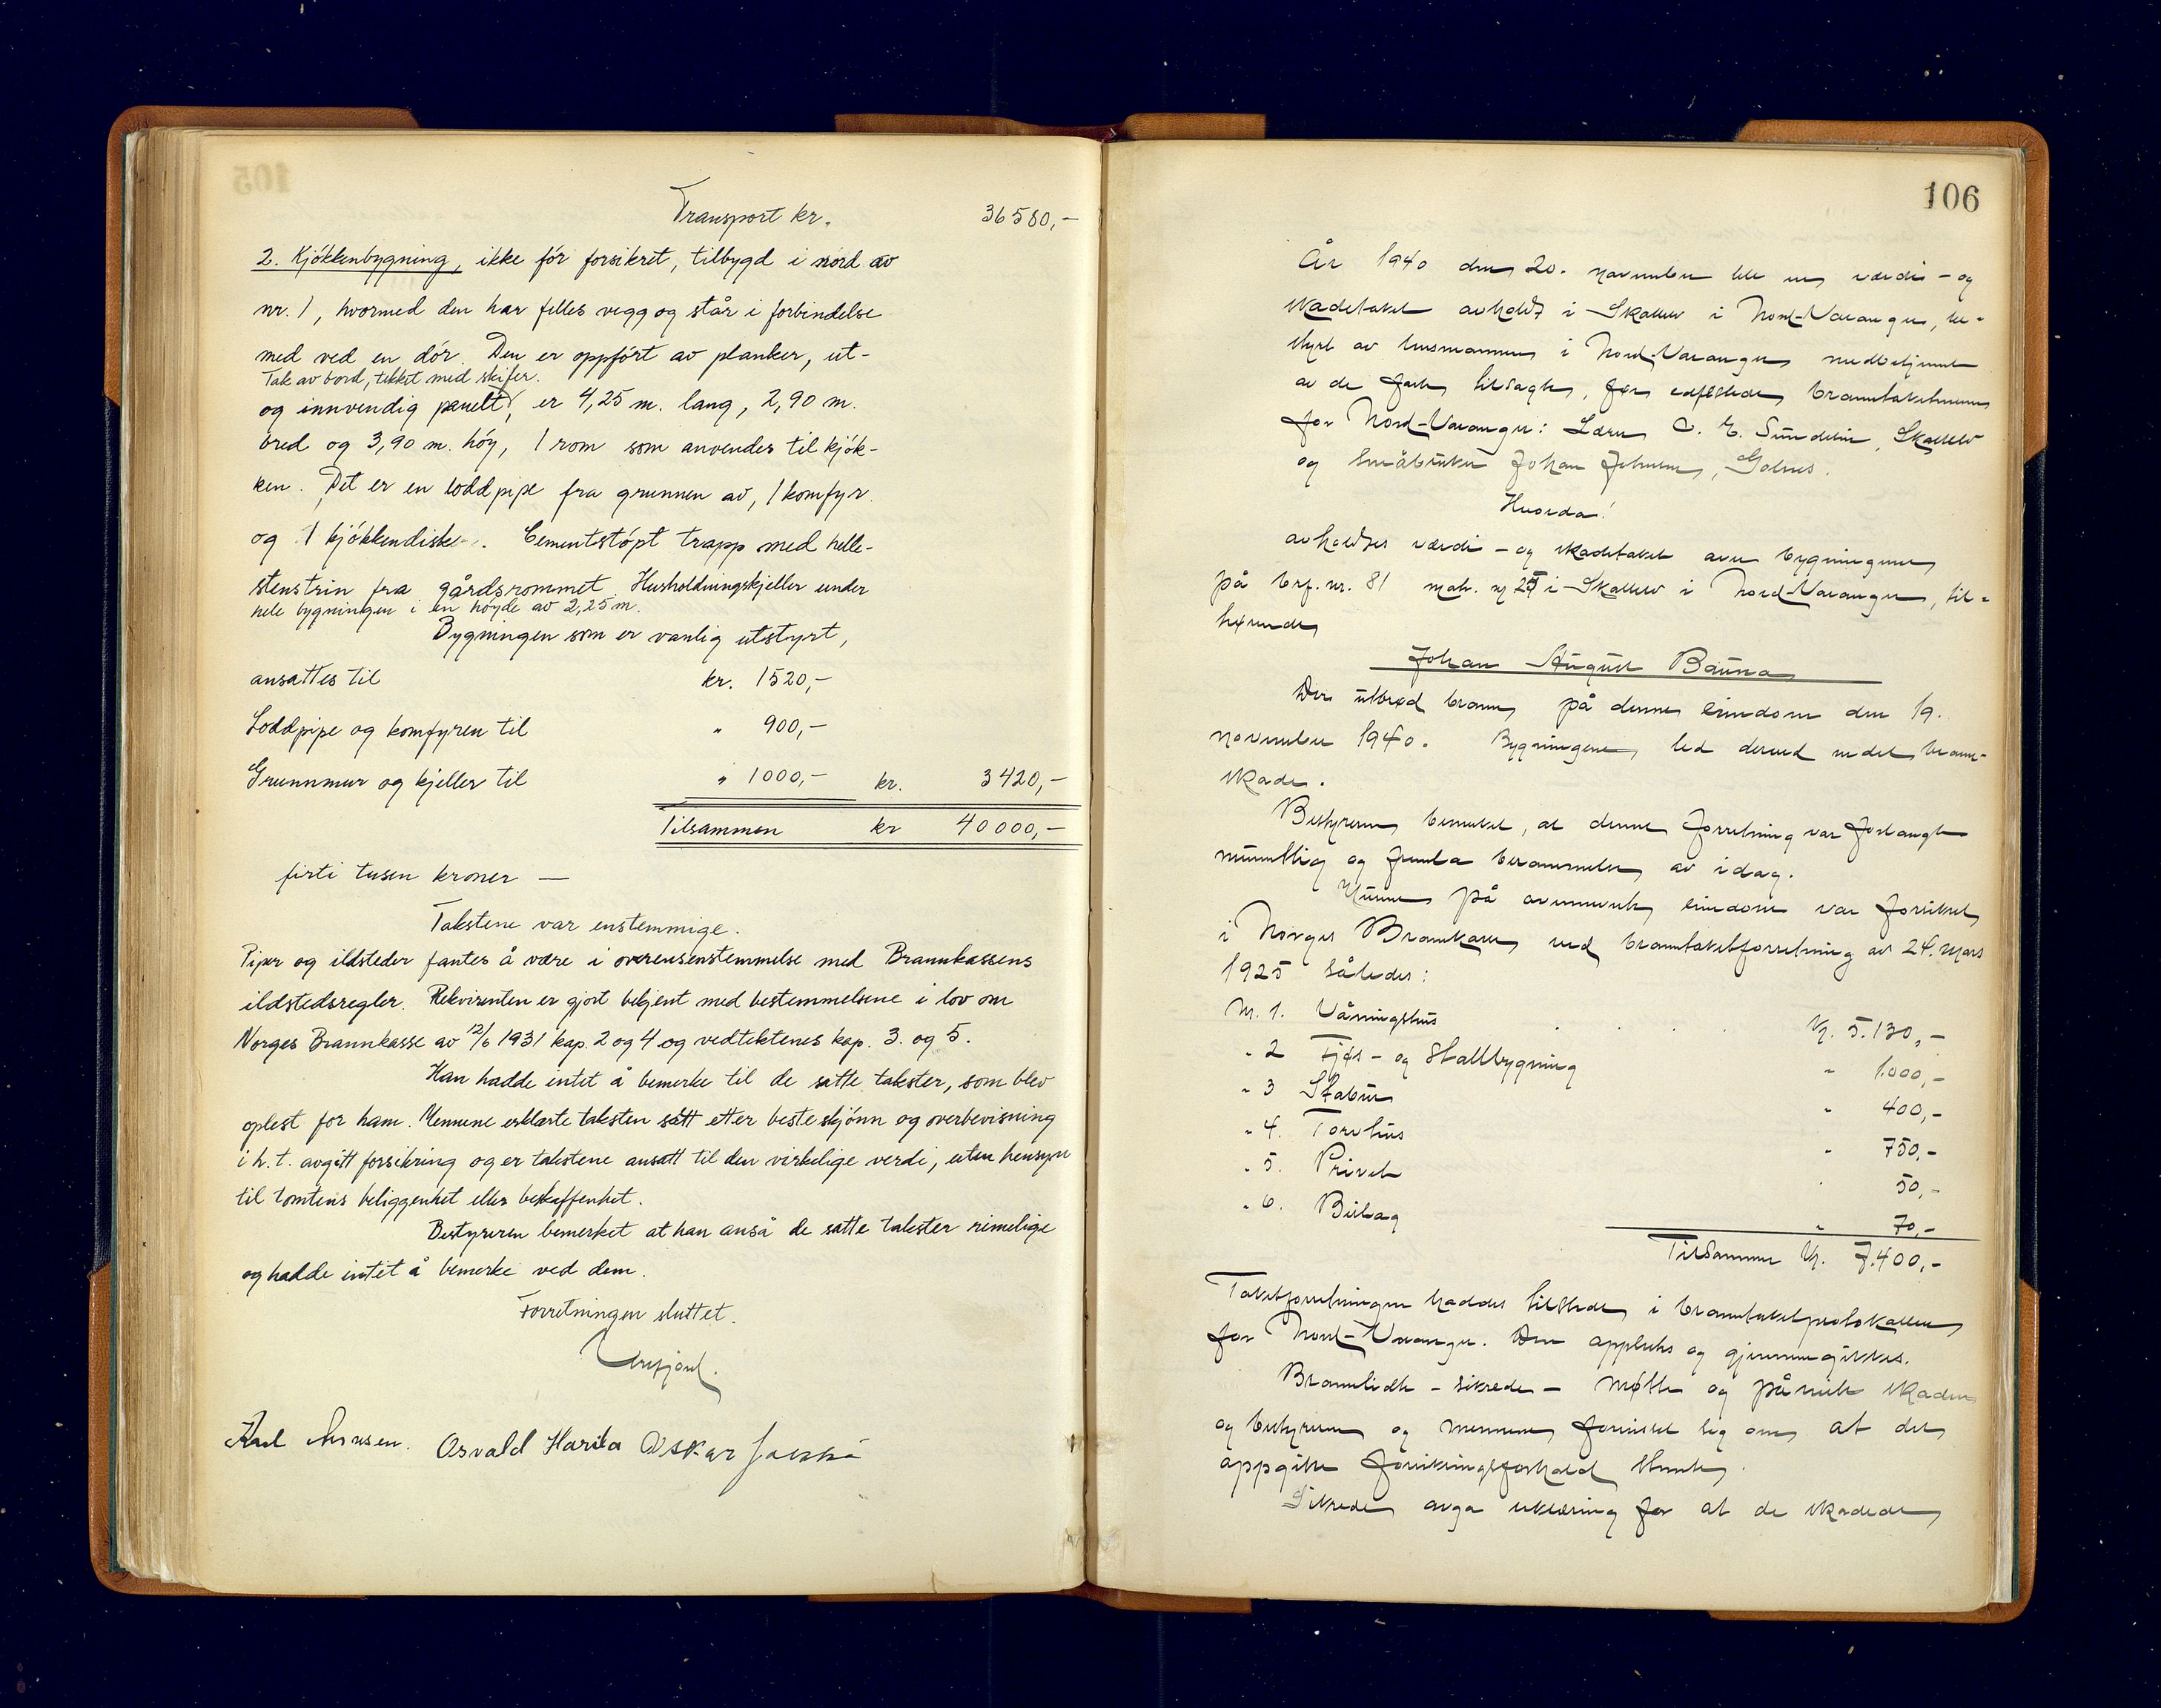 Transport kr. 36580,-
2. Kjökkenbygning, ikke för forsikret, tilbygd i nord av
nr. 1, hvormed den har felles vegg og står i forbindelse
med ved en dör. Den er oppfört av planker, ut-
Tak av bord, tekket med skifer.
og innvendig panelt, er 4,25 m. lang, 2,90 m.
bred og 3,90 m. höy, 1 rom som anvendes til kjök-
ken. Det er en loddpipe fra grunnen av, 1 komfyr
og 1 kjökkendisk. Cementstöpt trapp med helle-
stenstrin fra gårdsrommet. Husholdningskjeller under
hele bygningen i en höyde av 2,25 m.
Bygningen som er vanlig utstyrt,
ansattes til kr. 1520,-
Loddpipe og komfyren til " 900,-
Grunnmur og kjeller til " 1000,- kr. 3420,-
Tilsammen kr 40000,-
firti tusen kroner —
Takstene var enstemmige.
Piper og ildsteder fantes å være i overensenstemmelse med Brannkassens
ildstedsregler. Rekvirenten er gjort bekjent med bestemmelsene i lov om
Norges Brannkasse av 12/6 1931 kap. 2 og 4 og vedtektenes kap. 3. og 5.
Han hadde intet å bemerke til de satte takster, som blev
oplest for ham. Mennene erklærte taksten satt etter beste skjönn og overbevisning
i h. t. avgitt forsikring og er takstene ansatt til den virkelige verdi, uten hensyn
til tomtens beliggenhet eller beskaffenhet.
Bestyreren bemerket at han anså de satte takster rimelige
og hadde intet å bemerke ved dem.
Forretningen sluttet.
Karl Osvald Harila Oskar
106
År 1940 den 20. november ble en værdi - og
skadetakst avholdt i Skallelv i Nord-Varanger, be-
styrt av lensmannen i Nord-Varanger medbetjent
av de fast tilsagte, før edfestede branntakstmenn
for Nord-Varanger: Lærer C. E. Sundelin, Skallelv
og småbruker Johan Johnsen, Golnes.
Hvorda!
avholdtes værdi - og skadetakst over bygningene
på brf. nr. 81 matr. nr 25 i Skallelv i Nord-Varanger, til-
hørende
Johan August Bauna
Der utbrød brann på denne eiendom den 19.
november 1940. Bygningene led derved brann-
skade.
Bestyreren bemerket, at denne forretning var forlangt
munntlig og fremla berammelse av idag.
Husene på ovennevnte eiendom var forsikret
i Norges Brannkasse ved branntakstforretning av 24. mars
1925 således:
Nr. 1. Våningshus Kr. 5.130,-
" 2 Fjøs - og Stallbygning " 1.000,-
" 3 Stabur " 400,-
" 4. Torvhus " 750,-
" 5. Privet " 50,-
" 6. Bislag " 70,-
Tilsammen Kr. 7.400,-
Takstforretningen haddes tilstede i branntakstprotokollen
for Nord-Varanger. Den opplestes og gjennemgikkes.
Brannlidte - sikrede - møtte og påviste skaden
og bestyreren og mennene forvisset seg om at det
oppgitte forsikringsforhold stemte.
Sikrede avga erklæring for at de skadede